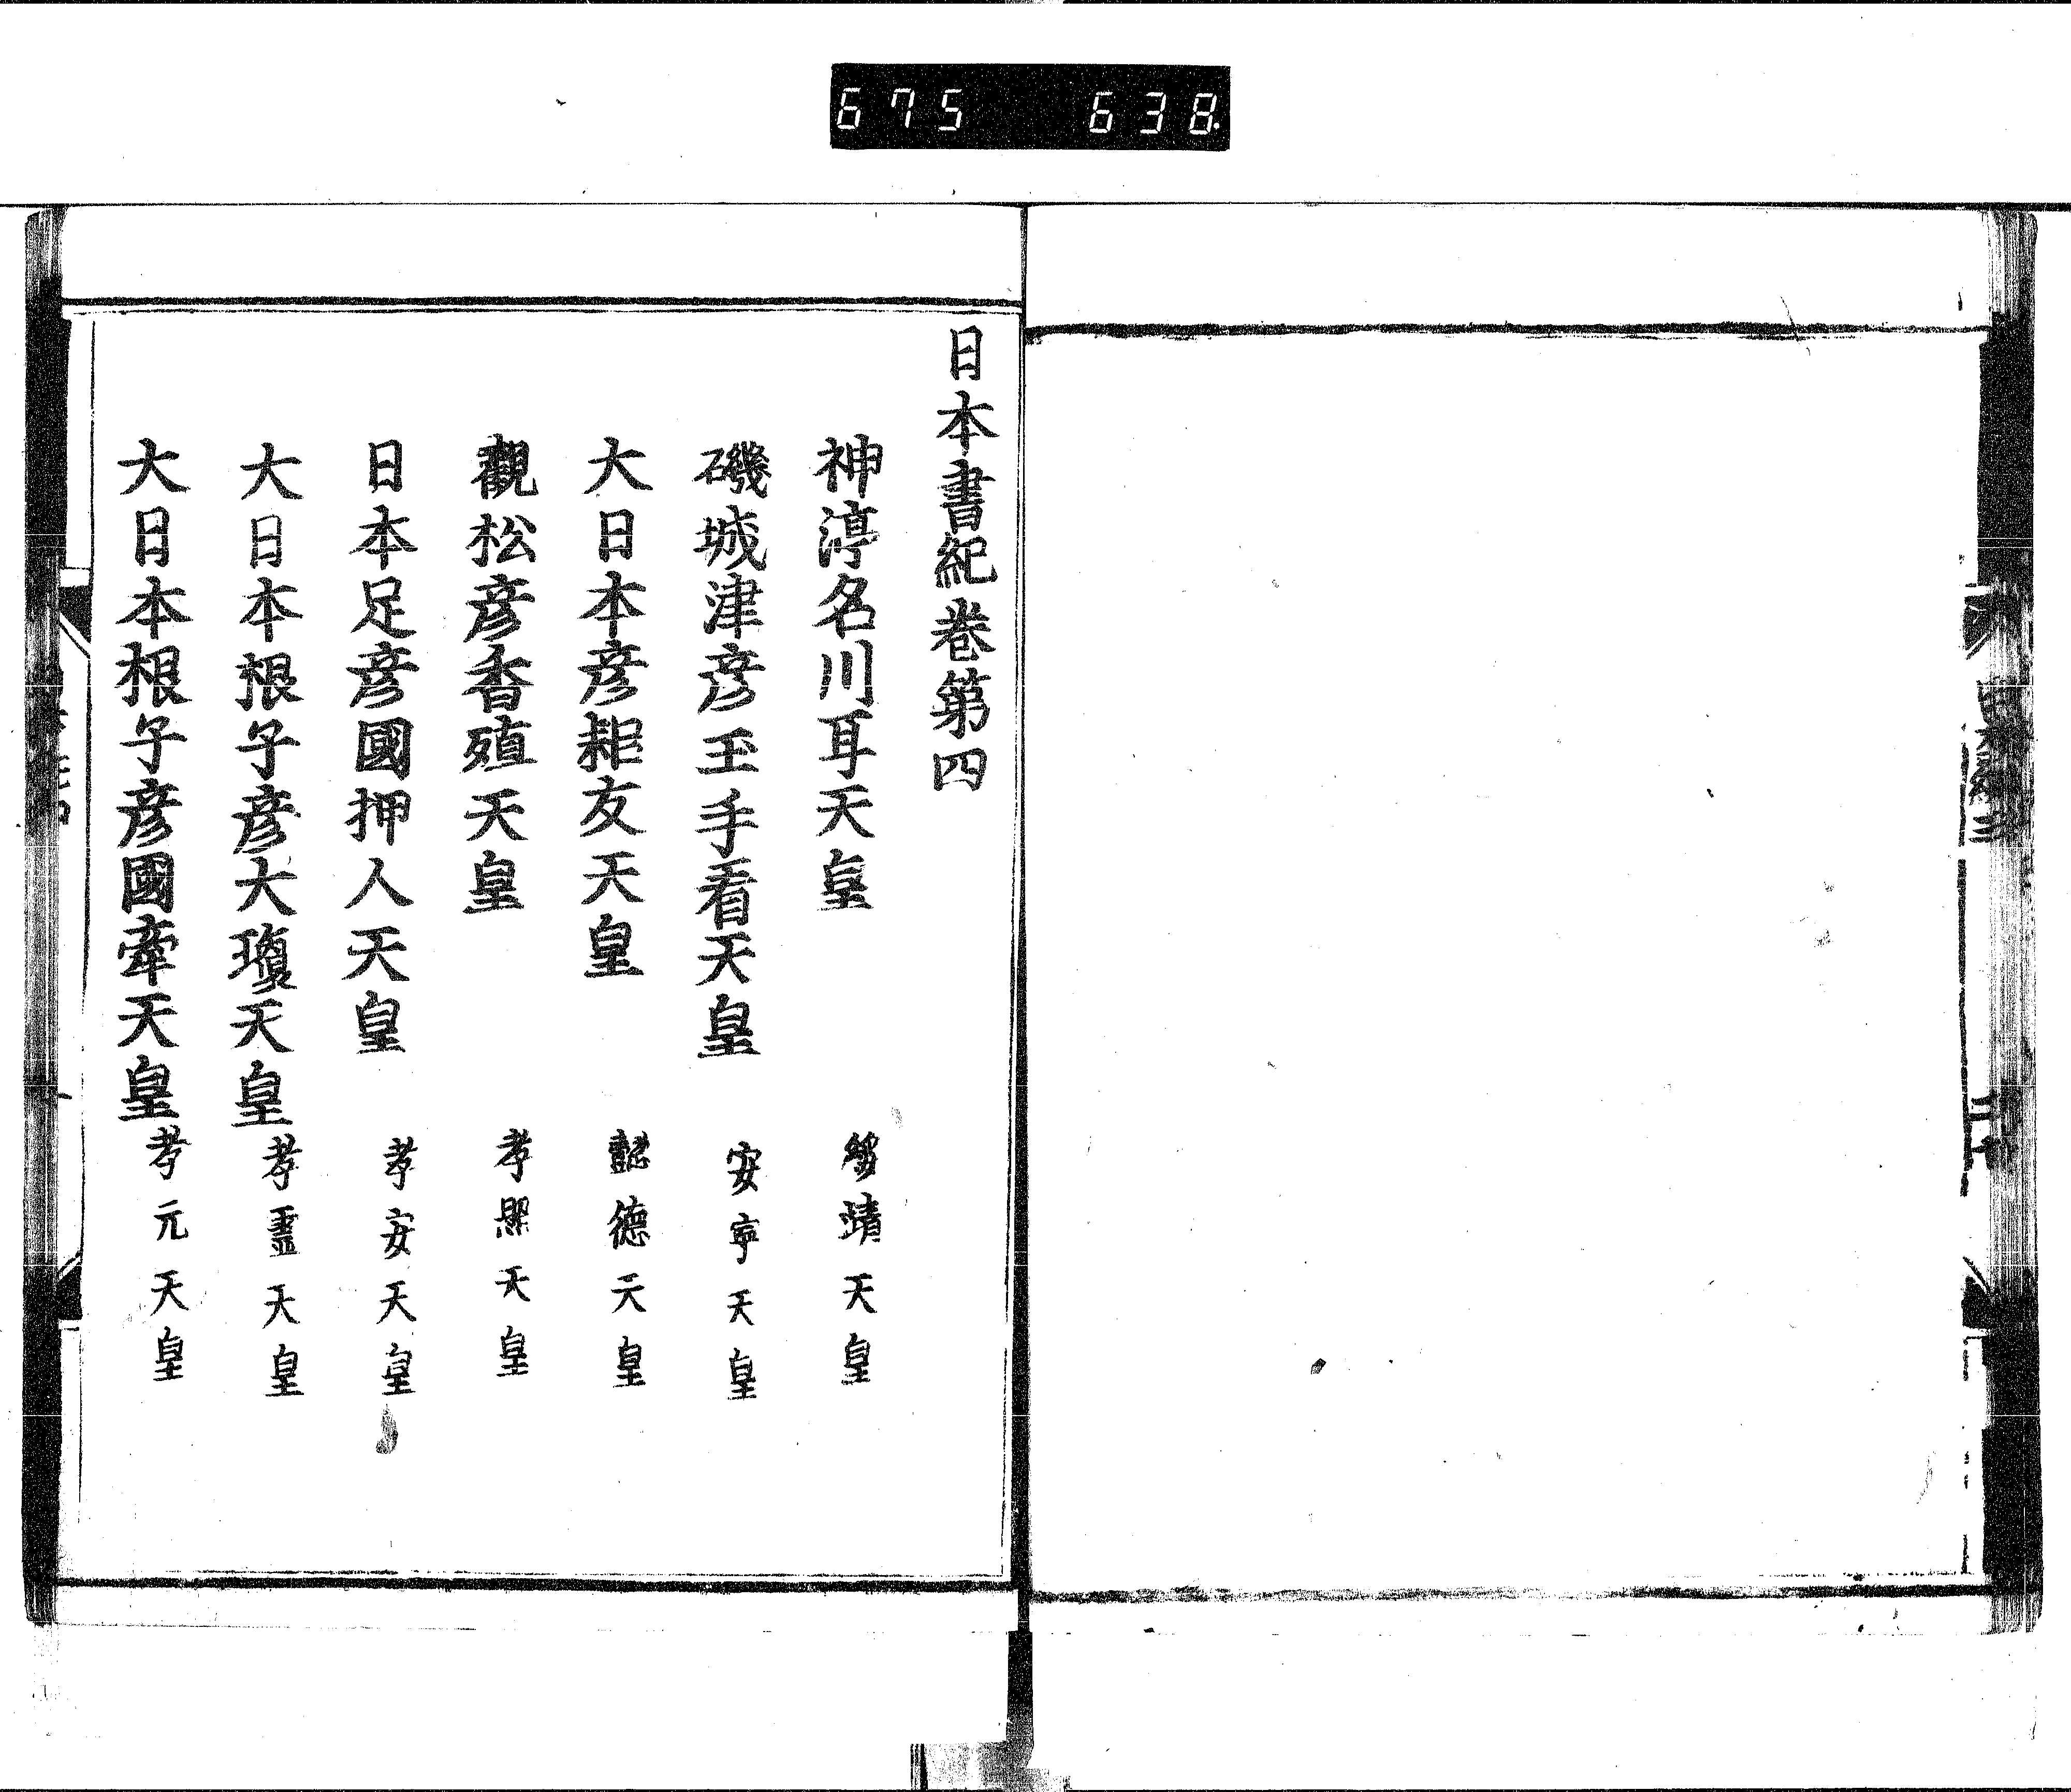 675 638
日本書紀卷第四
神渟名川耳天皇 綏靖天皇
磯城津彦玉手看天皇 安寧天皇
大日本彦耜友天皇 懿德天皇
觀松彦香殖天皇 孝昭天皇
日本足彦國押人天皇 孝安天皇
大日本根子彦大瓊天皇 孝霊天皇
大日本根子彦國牽天皇 孝元天皇